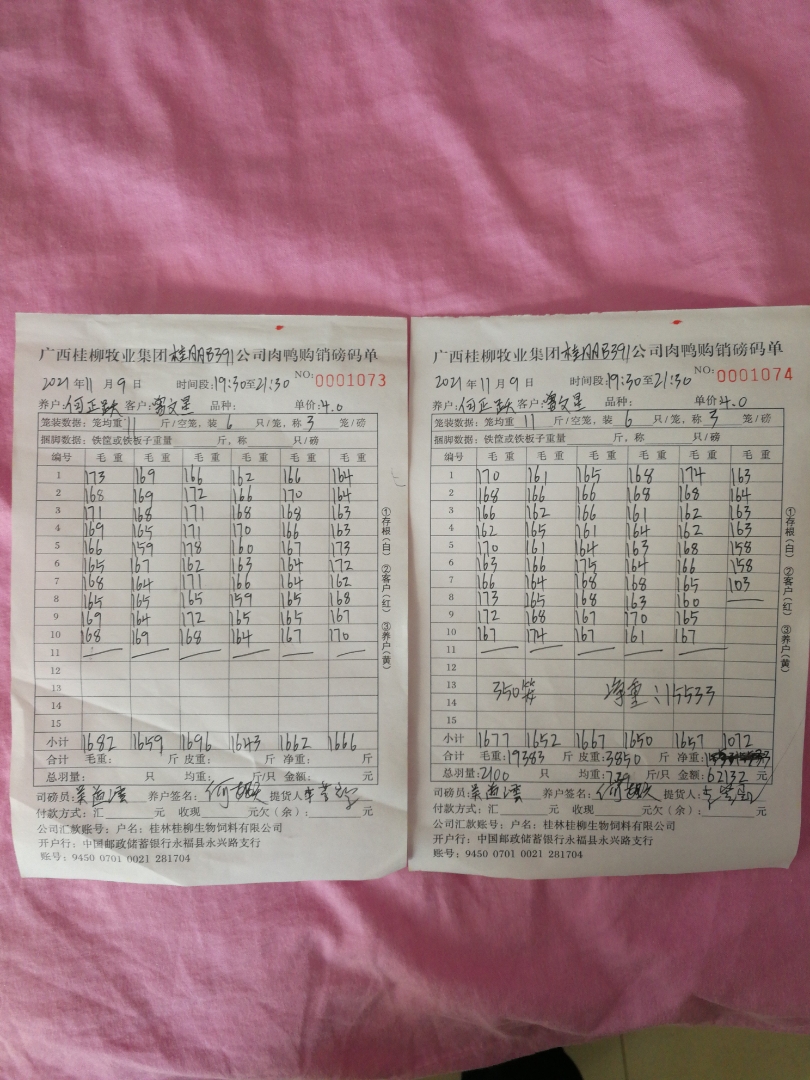 广西桂柳牧业集团桂AAB391公司肉鸭购销磅码单
2021年11月9日 时间段:19:30至21:30 NO:0001073
养户:何正跃 客户:雷文星 品种: 单价:4.0
笼装数据:笼均重11斤/空笼,装6只/笼,称3笼/磅
捆脚数据:铁筐或铁板子重量 斤,称 只/磅
编号 毛重 毛重 毛重 毛重 毛重 毛重
1 173 169 166 162 166 164
2 168 169 172 166 170 164
3 171 168 171 168 168 163
4 169 165 171 170 166 163
5 166 159 178 160 167 173
6 165 167 162 163 164 172
7 168 164 171 166 164 162
8 165 165 165 159 165 168
9 169 164 172 165 165 167
10 168 169 168 164 167 170
11
12
13
14
15
小计 1682 1659 1696 1643 1662 1666
合计 毛重: 斤 皮重: 斤 净重: 斤
总羽量: 只 均重: 斤/只 金额: 元
司磅员: 养户签名:何 提货人
付款方式:汇 元 收现 元欠(余): 元
公司汇款账号:户名:桂林桂柳生物饲料有限公司
开户行:中国邮政储蓄银行永福县永兴路支行
账号:9450 0701 0021 281704
①存根(白) ②客户(红) ③养户(黄)
广西桂柳牧业集团桂AAB391公司肉鸭购销磅码单
2021年11月9日 时间段:19:30至21:30 NO:0001074
养户:何正跃 客户:雷文星 品种: 单价4.0
笼装数据:笼均重11斤/空笼,装6只/笼,称3笼/磅
捆脚数据:铁筐或铁板子重量 斤,称 只/磅
编号 毛重 毛重 毛重 毛重 毛重 毛重
1 170 161 165 168 174 163
2 168 166 166 168 168 164
3 166 162 166 161 162 163
4 162 165 161 164 162 163
5 170 161 164 163 168 158
6 163 166 175 164 166 158
7 166 164 168 168 165 103
8 173 165 168 163 160
9 172 168 167 170 165
10 167 174 167 161 167
11
12
13 350笼 净重:15533
14
15
小计 1677 1652 1667 1650 1657 1072
合计 毛重:19383斤 皮重:3850斤 净重:
总羽量:2100只 均重:7.39斤/只 金额:62132元
司磅员: 养户签名:何 提货人:
付款方式:汇 元 收现 元欠(余): 元
公司汇款账号:户名:桂林桂柳生物饲料有限公司
开户行:中国邮政储蓄银行永福县永兴路支行
账号:9450 0701 0021 281704
①存根(白) ②客户(红) ③养户(黄)